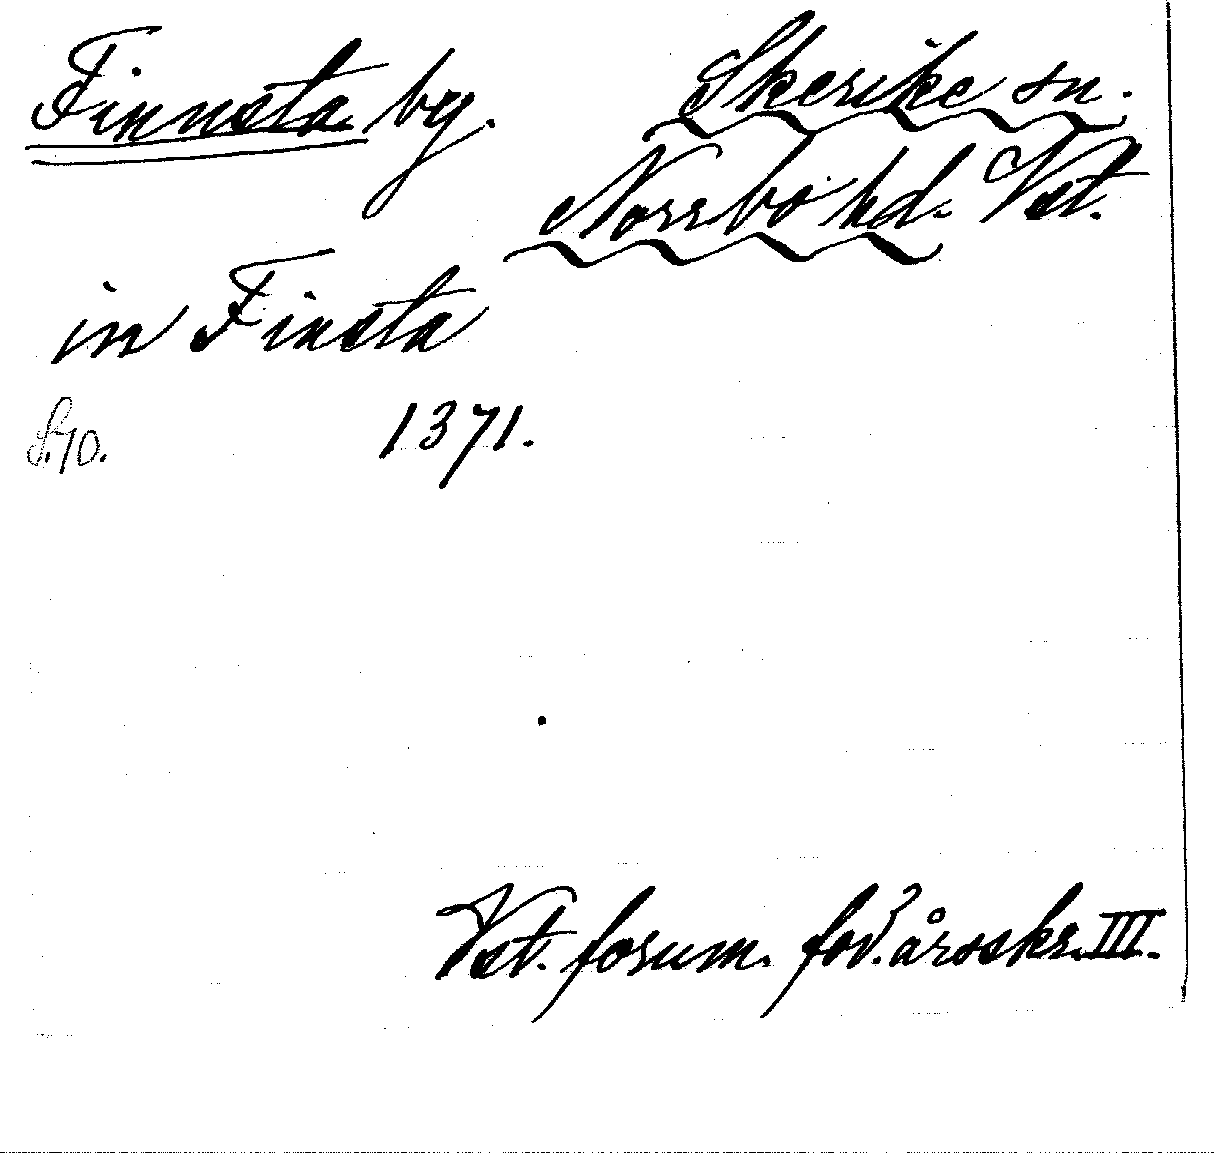 Finnsta by.
Skerike sn.
Norrbo hd. Vst.
in Finsta
S. 70. 1371.
Vst. forum. föd. årsskr. III.